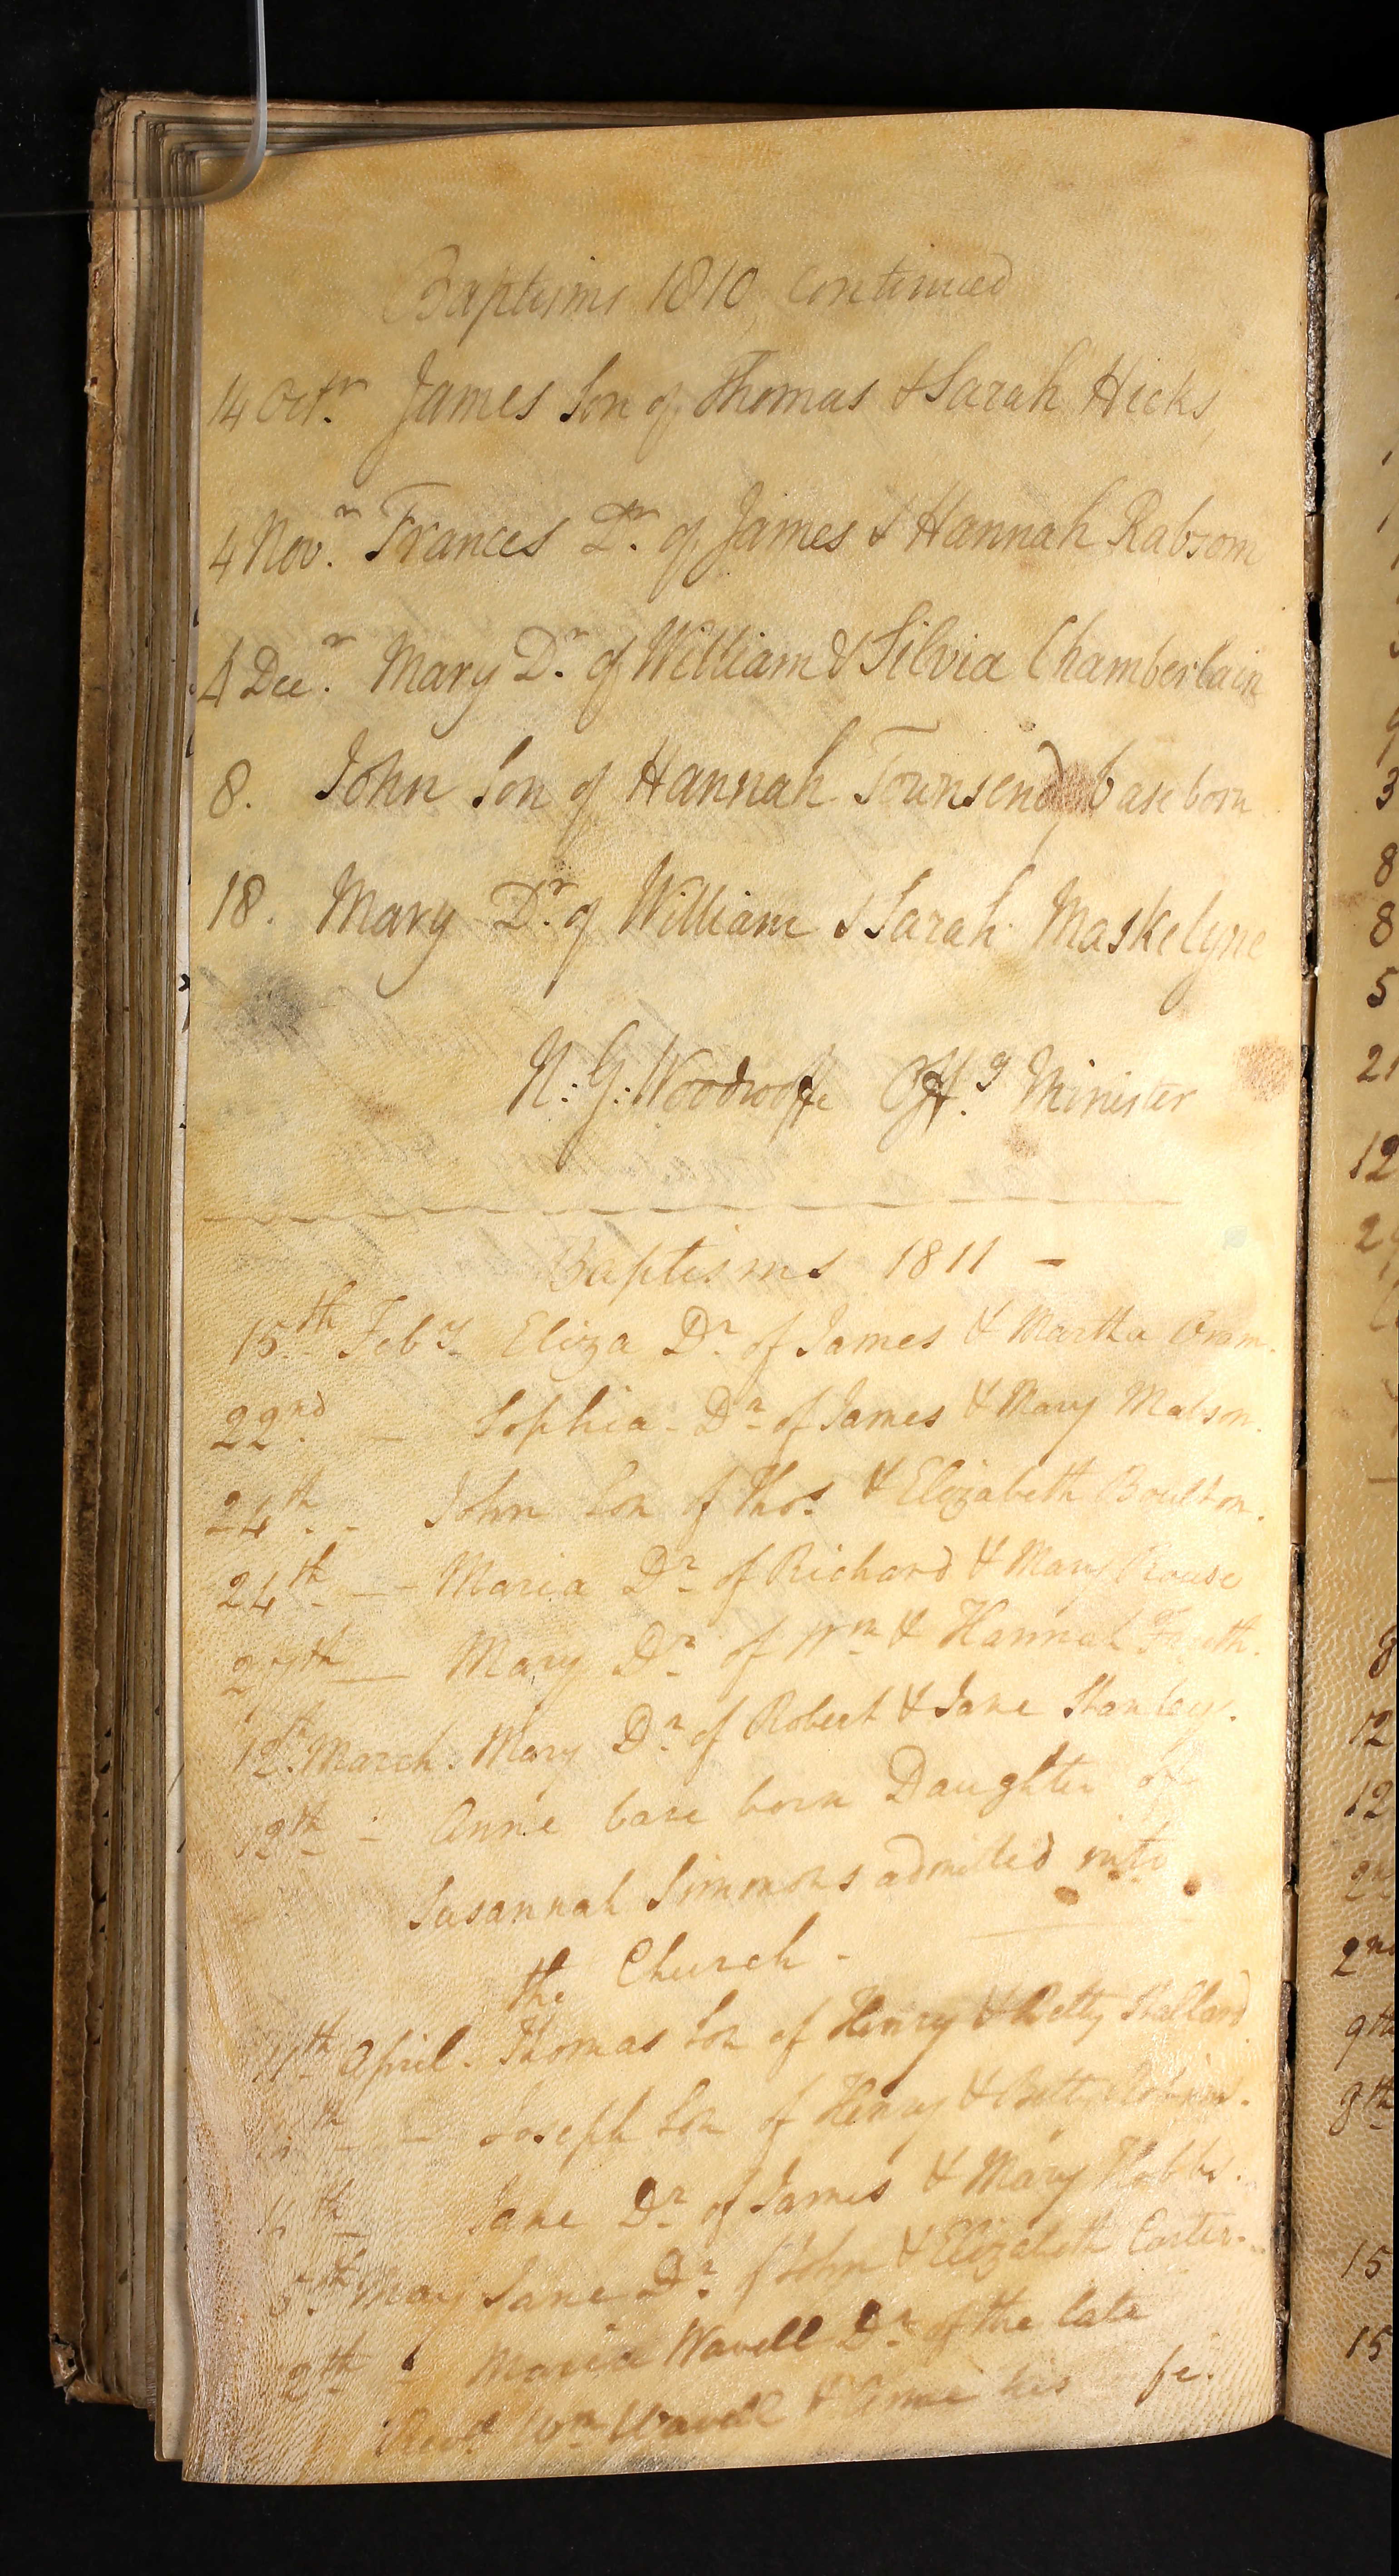 Baptisms 1810 continued
14 Octr. James Son of Thomas & Sarah Hicks
4 Novr. Frances Dr. of James & Hannah Rabsom
4 Decr. Mary Dr. of William & Silvia Chamberlain
8. John Son of Hannah Townsend base born
18. Mary Dr. of William & Sarah Maskelyne
N: G: Woodrooffe Offg. Minister
Baptisms 1811 -
15th Feby. Eliza Dr. of James & Martha Oram.
22nd. - Sophia - Dr. of James & Mary Matson.
24th. - John Son of Thos. & Elizabeth Boulton.
24th - - Maria Dr. of Richard & Mary Rouse
27th - Mary Dr. of Wm & Hannah
12th. March. Mary Dr. of Robert & Jane Stanley.
12th - Anne base born Daughter of
Susannah Simmons admitted into
the Church -
April. Thomas Son of Henry & Betty Stallard
th - - Joseph Son of Henry & Betty
th Jane Dr. of James & Mary Hobbs.
5th May Jane Dr. of John & Elizabeth Carter.
9th - Maria Wavell Dr. of the late
Revd. Wm Wavell & Anne his wife.
3
8
8
5
21
12
8
12
12
2nd
2nd
9th
8th
15
15